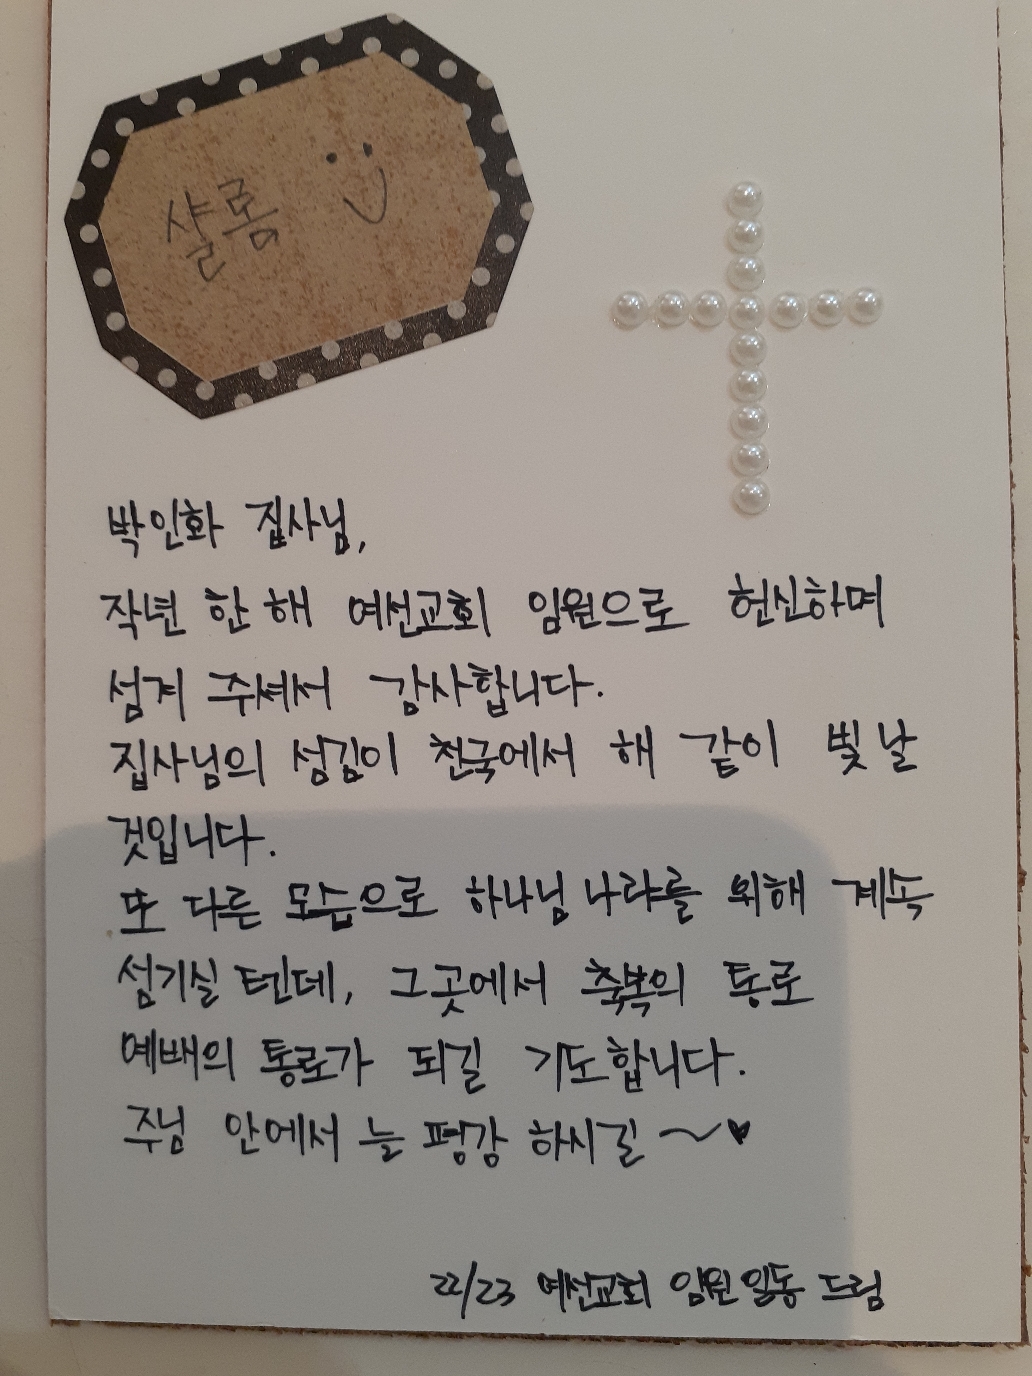 샬롬 :)
박인화 집사님,
작년 한 해 여선교회 임원으로 헌신하며
섬겨 주셔서 감사합니다.
집사님의 섬김이 천국에서 해 같이 빛날
것입니다.
또 다른 모습으로 하나님 나라를 위해 계속
섬기실 텐데, 그곳에서 축복의 통로
예배의 통로가 되길 기도합니다.
주님 안에서 늘 평강 하시길 ~♥
22/23 여선교회 임원 일동 드림